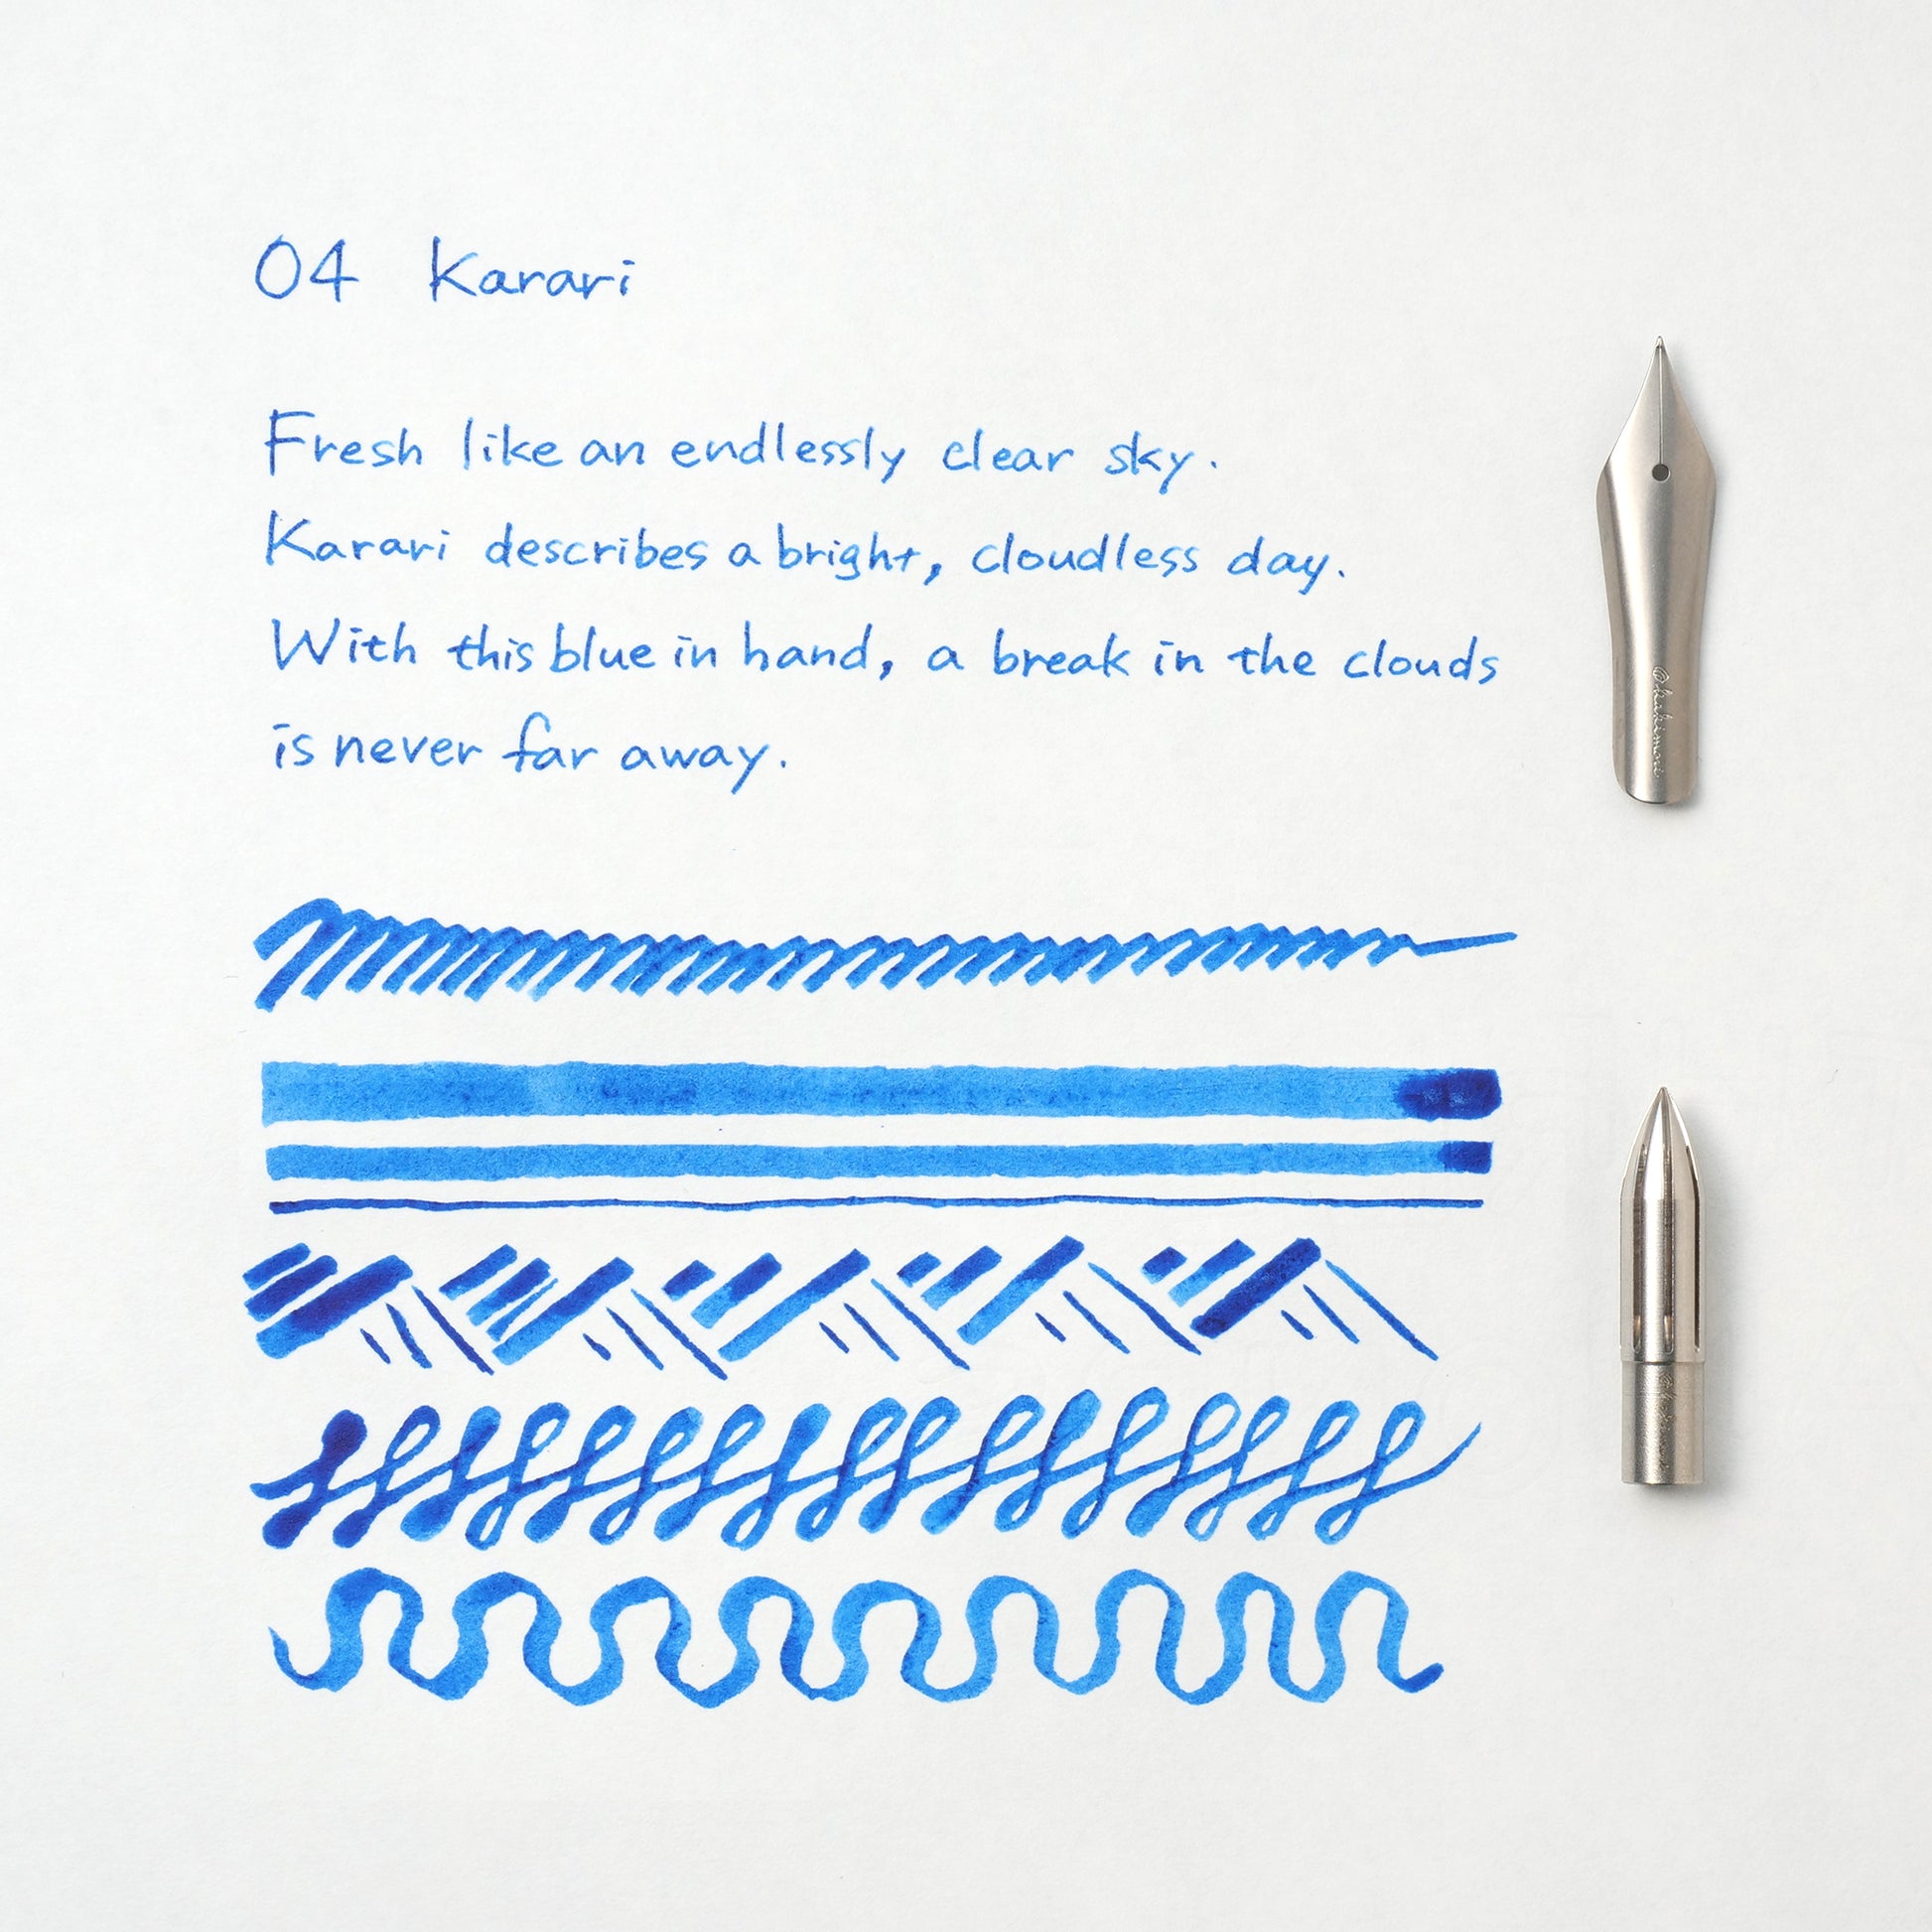 04 Karari
Fresh like an endlessly clear sky.
Karari describes a bright, cloudless day.
With this blue in hand, a break in the clouds
is never far away.
@kakimori